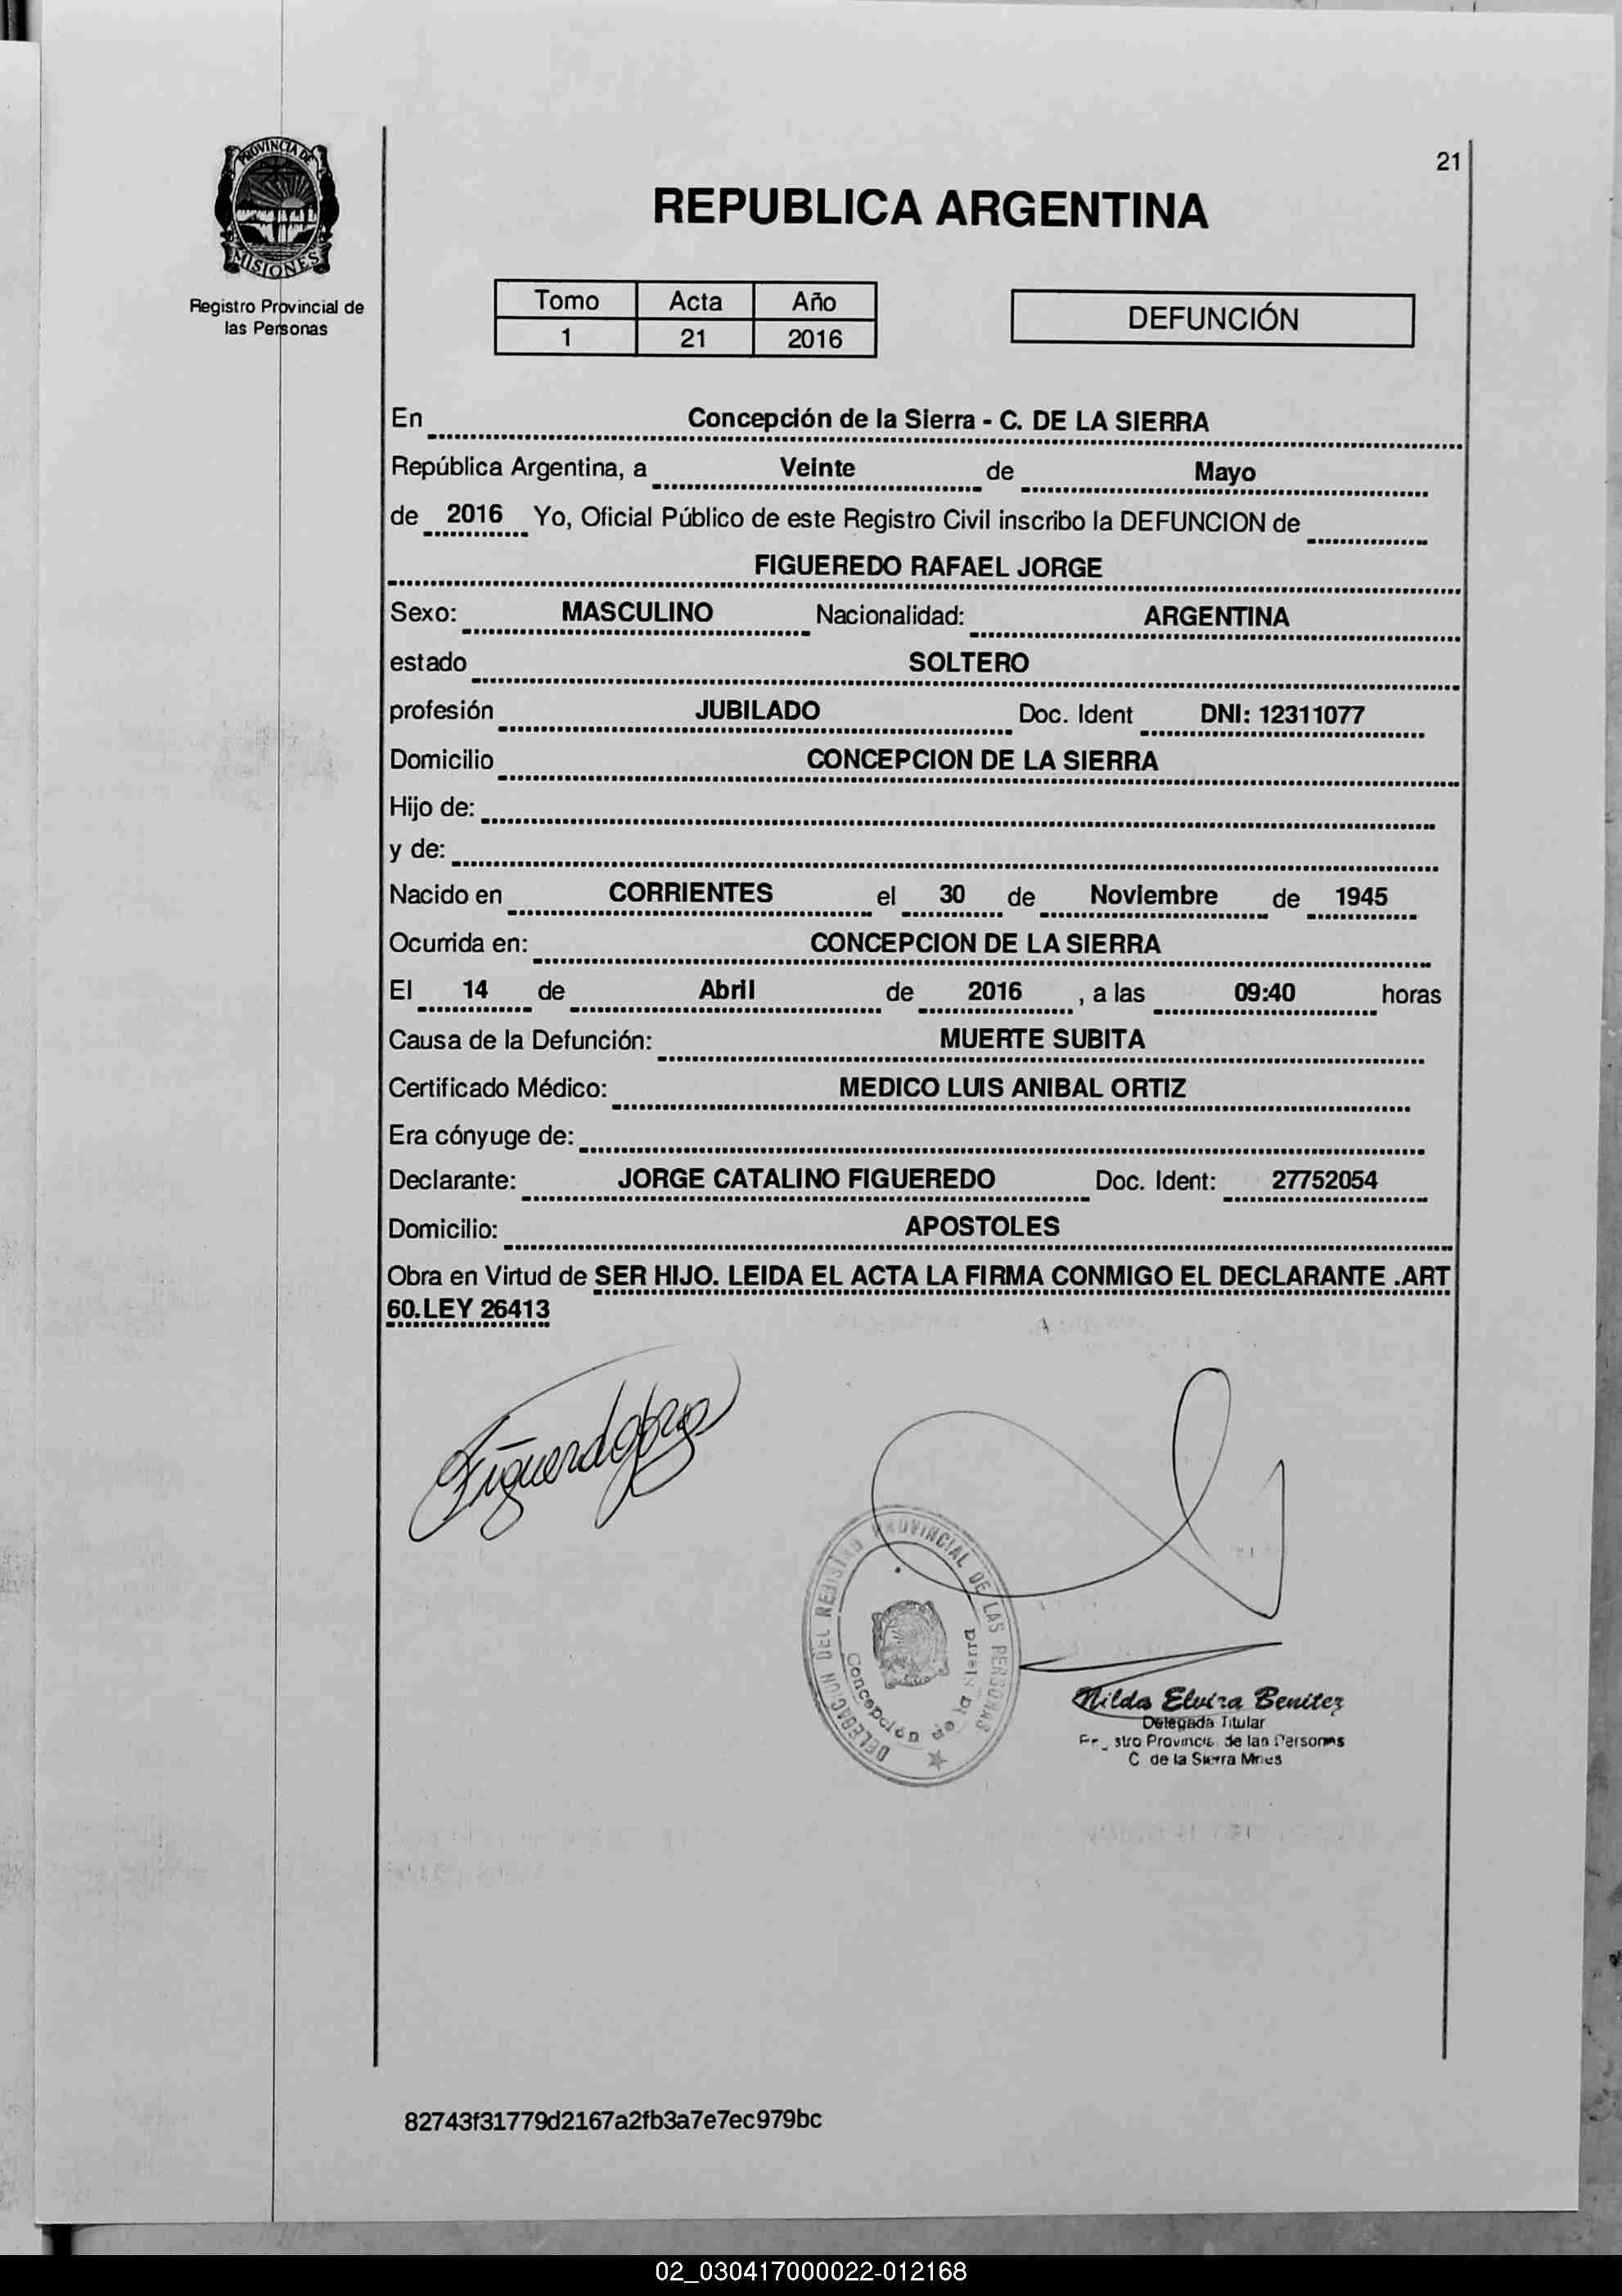 PROVINCIA DE
MISIONES
Registro Provincial de
las Personas
21
REPUBLICA ARGENTINA
Tomo Acta Año
1 21 2016
DEFUNCIÓN
En Concepción de la Sierra - C. DE LA SIERRA
República Argentina, a Veinte de Mayo
de 2016 Yo, Oficial Público de este Registro Civil inscribo la DEFUNCION de
FIGUEREDO RAFAEL JORGE
Sexo: MASCULINO Nacionalidad: ARGENTINA
estado SOLTERO
profesión JUBILADO Doc. Ident DNI: 12311077
Domicilio CONCEPCION DE LA SIERRA
Hijo de:
y de:
Nacido en CORRIENTES el 30 de Noviembre de 1945
Ocurrida en: CONCEPCION DE LA SIERRA
El 14 de Abril de 2016 , a las 09:40 horas
Causa de la Defunción: MUERTE SUBITA
Certificado Médico: MEDICO LUIS ANIBAL ORTIZ
Era cónyuge de:
Declarante: JORGE CATALINO FIGUEREDO Doc. Ident: 27752054
Domicilio: APOSTOLES
Obra en Virtud de SER HIJO. LEIDA EL ACTA LA FIRMA CONMIGO EL DECLARANTE .ART
60.LEY 26413
DELEGACION DEL REGISTRO PROVINCIAL DE LAS PERSONAS
Concepción de la Sierra
Nilda Elvira Benitez
Delegada Titular
de las Personas
C de la Sierra
82743f31779d2167a2fb3a7e7ec979bc
02_030417000022-012168